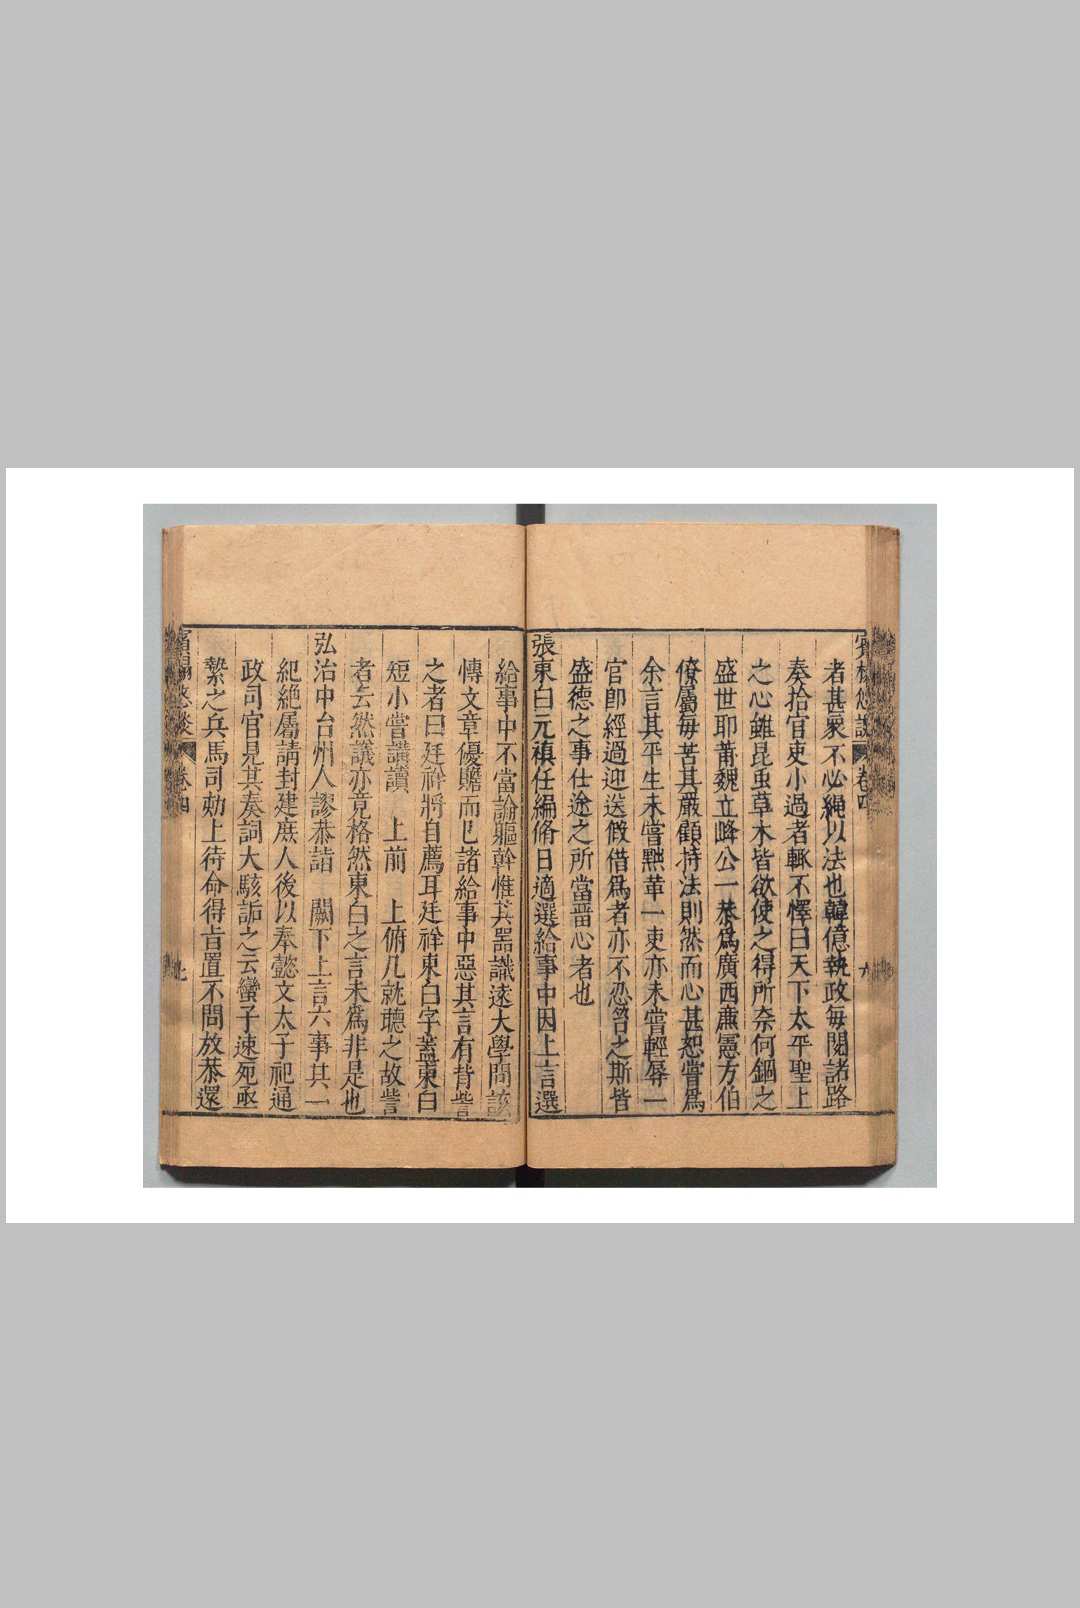 者甚衆不必繩以法也韓億執政每閱諸路
奏拾官吏小過者輒不懌曰天下太平聖上
之心雖昆虫草木皆欲使之得所奈何錮之
盛世耶莆魏立峰公一恭爲廣西廉憲方伯
僚屬每苦其嚴顧持法則然而心甚恕嘗爲
余言其平生未嘗黜革一吏亦未嘗輕辱一
官卽經過迎送假借爲者亦不忍笞之斯皆
盛德之事仕途之所當畱心者也
張東白元禎任編脩日適選給事中因上言選
給事中不當論軀幹惟其器識遠大學問該
博文章優贍而已諸給事中惡其言有背訾
之者曰廷祥將自薦耳廷祥東白字葢東白
短小嘗講讀 上前 上俯几就聽之故訾
者云然議亦竟格然東白之言未爲非是也
弘治中台州人謬恭詣 闕下上言六事其一
紀絶屬請封建庶人後以奉懿文太子祀通
政司官見其奏詞大駭詬之云蠻子速死亟
縶之兵馬司劾上待命得旨置不問放恭還
卷四